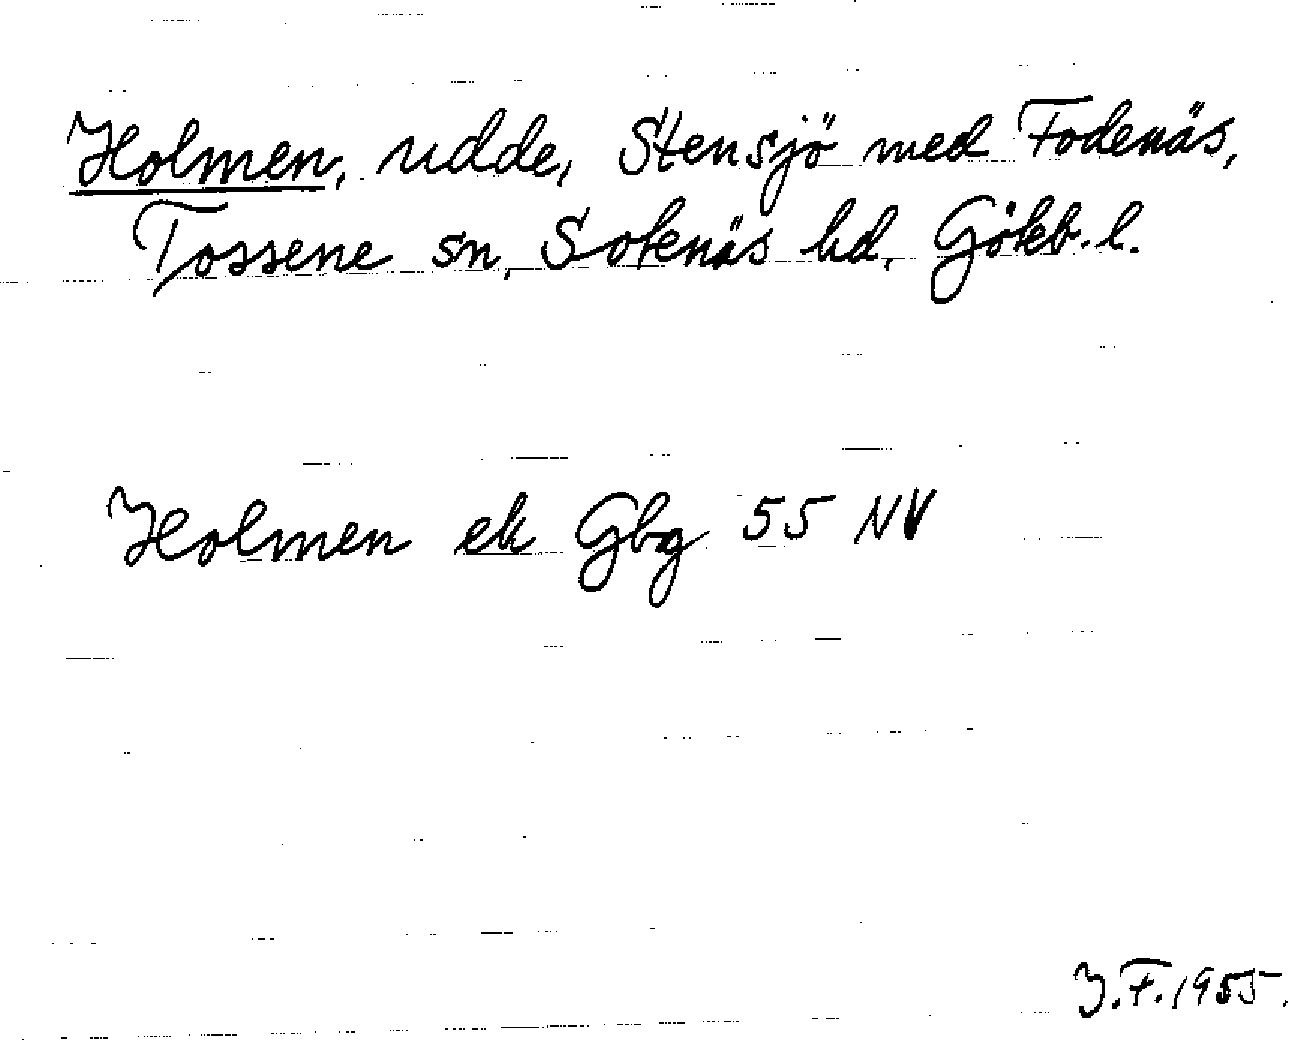 Holmen, udde, Stensjö med Fodenäs,
Tossene sn, Sotenäs hd, Göteb. l.
Holmen ek Gbg 55 NV
J.F. 1955.